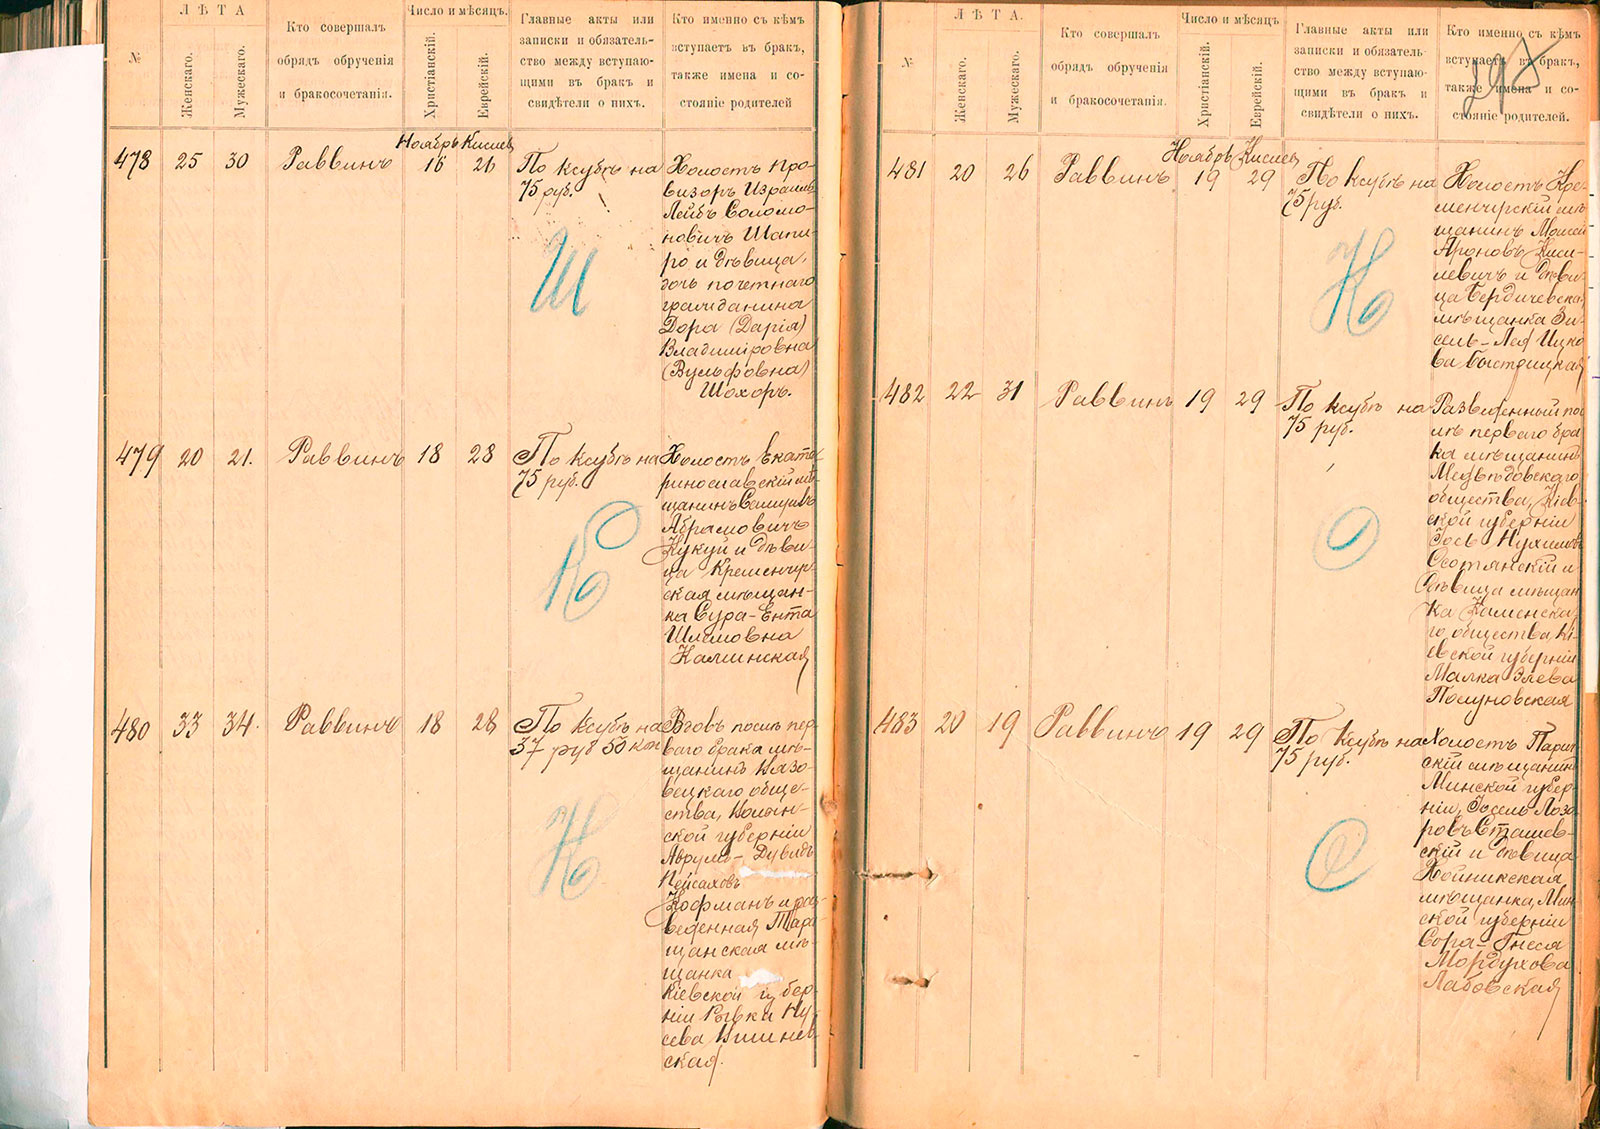 ЛѢТА
№
Женскаго.
Мужескаго.
Кто совершалъ
обрядъ обрученія
и бракосочетанія.
Число и мѣсяцъ.
Христіанскій.
Еврейскій.
Главные акты или
записки и обязатель-
ство между вступаю-
щими въ бракъ и
свидѣтели о нихъ.
Кто именно съ кѣмъ
вступаетъ въ бракъ,
также имена и со-
стояніе родителей
Ноябрь Кислев
478 25 30 Раввинъ 16 26 По ксубѣ на
75 руб.
Ш
Холостъ про-
визоръ Израиль
Лейбъ Соломо-
новичъ Шапи-
ро и дѣвица,
дочь почетнаго
гражданина
Дора (Дарія)
Владиміровна
(Вульфовна)
Шохоръ.
479 20 21. Раввинъ 18 28 По ксубѣ на
75 руб.
К
Холостъ Екате-
ринославскій мѣ-
щанинъ Самуилъ
Абрамовичъ
Кукуй и дѣви-
ца Кременчуг-
ская мѣщан-
ка Сура-Ента
Шлемовна
Калинская
480 33 34. Раввинъ 18 28 По ксубѣ на
37 руб 50 коп
К
Вдовъ послѣ пер-
ваго брака мѣ-
щанинъ
вецкаго обще-
ства, Волын-
ской губерніи
Аврумъ-Дувидъ
Пейсаховъ
Кофманъ и раз-
веденная Тара-
щанская мѣ-
щанка
Кіевской губер-
ніи
сева
ская.
ЛѢТА.
№
Женскаго.
Мужескаго.
Кто совершалъ
обрядъ обрученія
и бракосочетанія.
Число и мѣсяцъ
Христіанскій.
Еврейскій.
Главные акты или
записки и обязатель-
ство между вступаю-
щими въ бракъ и
свидѣтели о нихъ.
Кто именно съ кѣмъ
вступаетъ въ бракъ,
также имена и со-
стояніе родителей.
Ноябрь Кислев
481 20 26 Раввинъ 19 29 По ксубѣ на
75 руб.
К
Холостъ Кре-
менчугскій мѣ-
щанинъ Моисей
Ароновъ Киси-
левичъ и дѣви-
ца Бердичевская
мѣщанка Зи-
сель-Лея Ицко-
ва Быстрицкая
482 22 31 Раввинъ 19 29 По ксубѣ на
75 руб.
О
Разведенный пос-
лѣ перваго бра-
ка мѣщанинъ
Медвѣдовскаго
общества, Кіев-
ской губерніи
Іось Нухимовъ
Осотянскій и
дѣвица мѣщан-
ка Каменска-
го общества Кі-
евской губерніи
Малка Элева
Полуновская
483 20 19 Раввинъ 19 29 По ксубѣ на
75 руб.
С
Холостъ Парич-
скій мѣщанинъ
Минской губер-
ніи, Іосель Лазо-
ровъ Сташев-
скій и дѣвица
Хойникская
мѣщанка, Мин-
ской губерніи
Сора-Гнеся
Мордухова
Лабовская